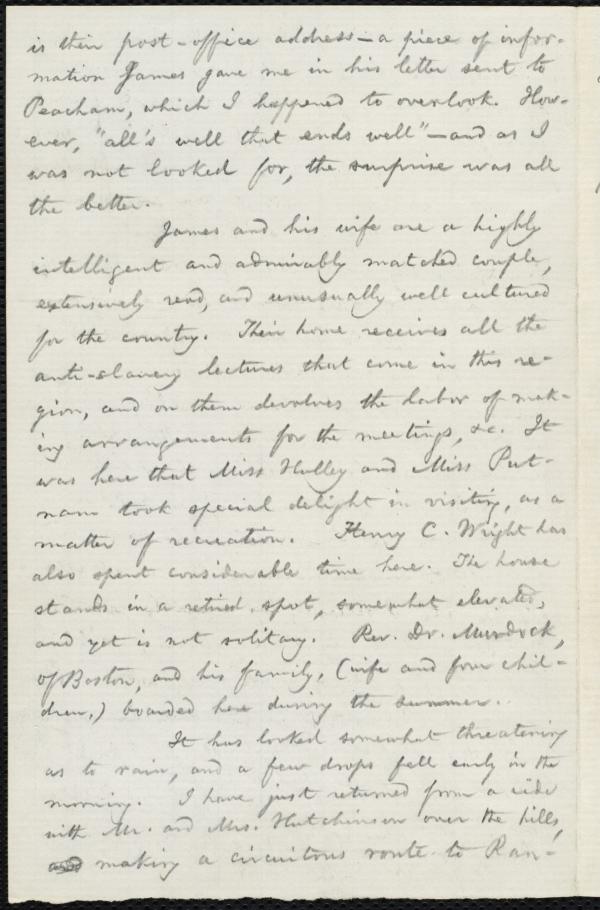 is their post-office address—a piece of infor-
mation James gave me in his letter sent to
Peacham, which I happened to overlook. How-
ever, "all's well that ends well"—and as I
was not looked for, the surprise was all
the better.
James and his wife are a highly
intelligent and admirably matched couple,
extensively read, and unusually well cultured
for the country. Their home receives all the
anti-slavery lectures that come in this re-
gion, and on them devolves the labor of mak-
ing arrangements for the meetings, &c. It
was here that Miss Holley and Miss Put-
nam took special delight in visiting, as a
matter of recreation. Henry C. Wright has
also spent considerable time here. The house
stands in a retired spot, somewhat elevated,
and yet is not solitary. Rev. Dr. Murdock,
of Boston, and his family, (wife and four chil-
dren,) boarded here during the summer.
It has looked somewhat threatening
as to rain, and a few drops fell early in the
morning. I have just returned from a ride
with Mr. and Mrs. Hutchinson over the hills,
making a circuitous route to Ran-